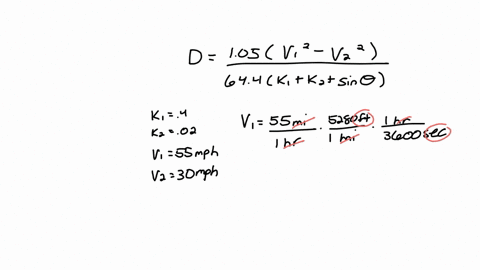 D = 1.05 ( V₁² - V₂² ) / 64.4 ( K₁ + K₂ + sin θ )
K₁ = .4
K₂ = .02
V₁ = 55 mph
V₂ = 30 mph
V₁ = 55 mi / 1 hr · 5280 ft / 1 mi · 1 hr / 3600 sec